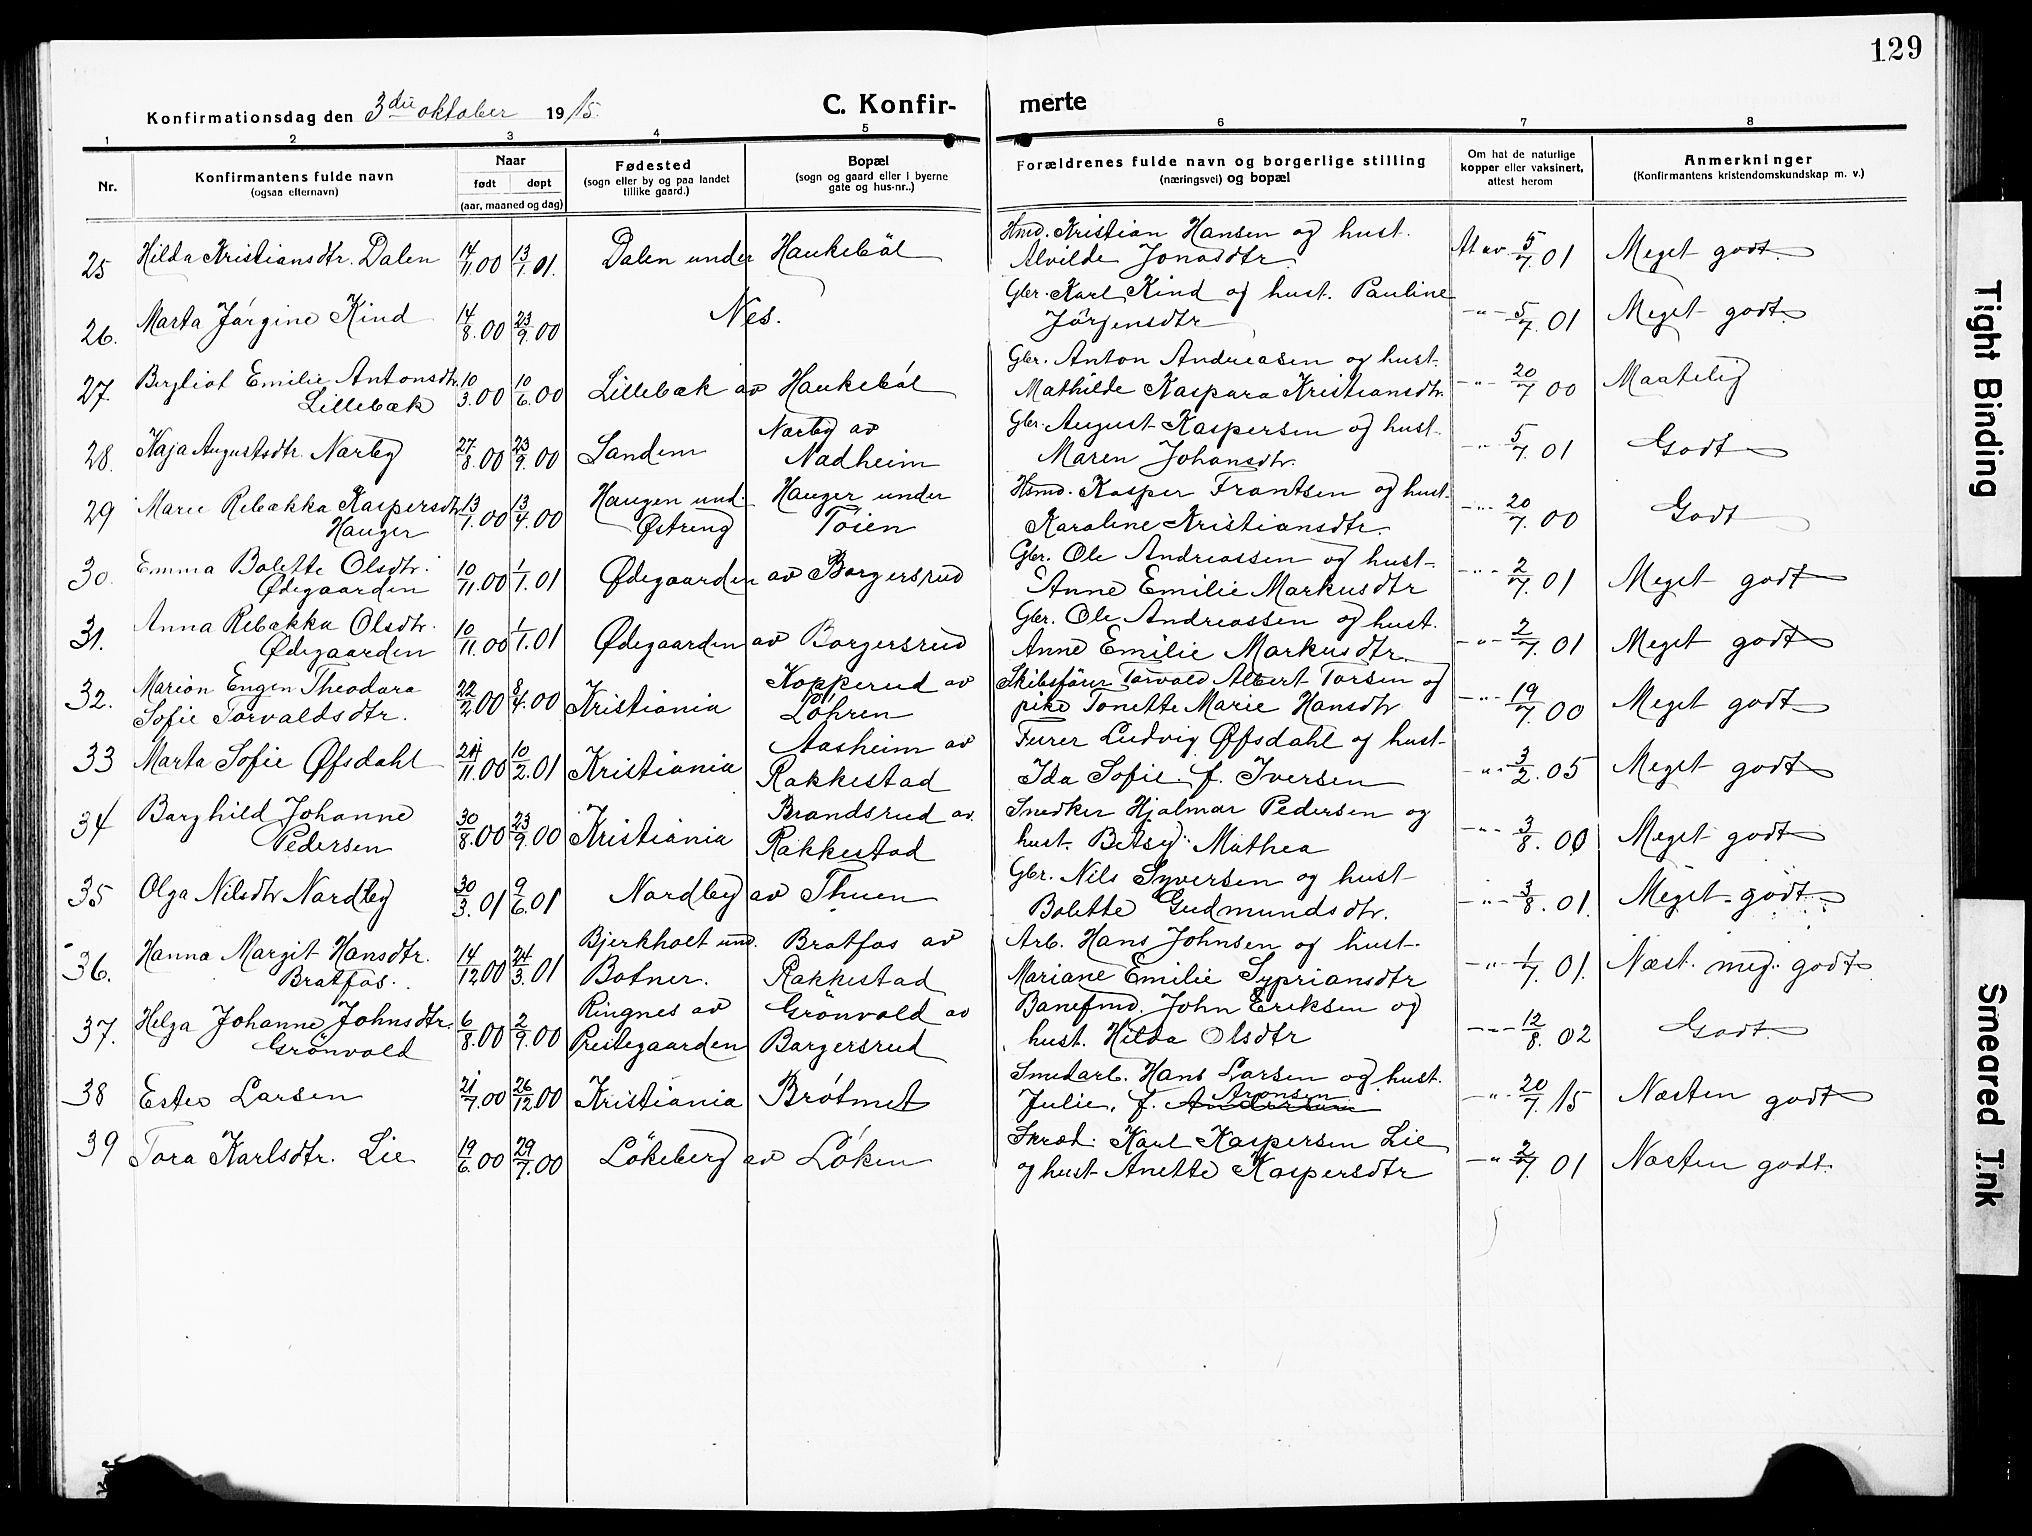 129
Konfirmationsdag den 3die oktober 1915.
C. Konfir- merte
1 2 3 4 5 6 7 8
Nr.
Konfirmantens fulde navn
(ogsaa efternavn)
Naar
født døpt
(aar, maaned og dag)
Fødested
(sogn eller by og paa landet
tillike gaard.)
Bopæl
(sogn og gaard eller i byerne
gate og hus-nr..)
Forældrenes fulde navn og borgerlige stilling
(næringsvei) og bopæl
Om hat de naturlige
kopper eller vaksinert,
attest herom
Anmerkninger
(Konfirmantens kristendomskundskap m. v.)
25 Hilda Kristiansdtr. Dalen 14/11.00 13/1.01. Dalen under Haukebøl
Hmd. Kristian Hansen og hust.
Alvilde Jonasdtr.
At av. 5/7.01 Meget godt.
26. Marta Jørgine Kind 14/8.00 23/9.00 Nes.
Gbr. Karl Kind og hust. Pauline
Jørgensdtr
-"- 5/7.01 Meget godt.
27. Bergliot Emilie Antonsdtr.
Lillebæk
10/3.00 10/6.00 Lillebæk av Haukebøl
Gbr. Anton Andreasen og hust.
Mathilde Kaspara Kristiansdtr.
-"- 20/7 00 Maatelig
28. Kaja Augustsdtr. Nærby 27/8.00 23/9.00 Sandem
Nærby av
Nadheim
Gbr. August Kaspersen og hust.
Maren Johansdtr.
-"- 5/7.01 Godt
29 Marie Rebækka Kaspersdtr.
Hauger
13/1.00 13/4.00
Haugen und.
Østreng
Hauger under
Tøien
Hsmd. Kasper Frantsen og hust.
Karoline Kristiansdtr.
-"- 20/7.00 Godt
30. Emma Bolette Olsdtr.
Ødegaarden
10/11.00 1/1.01 Ødegaarden av Borgersrud
Gbr. Ole Andreassen og hust.
Anne Emilie Markusdtr
-"- 2/7.01 Meget godt
31. Anna Rebækka Olsdtr.
Ødegaarden
10/11.00 1/1.01 Ødegaarden av Borgersrud
Gbr. Ole Andreassen og hust.
Anne Emilie Markusdtr.
-"- 2/7.01 Meget godt
32. Marion Engen Theodora
Sofie Torvaldsdtr.
22/2.00 8/4.00 Kristiania
Kopperud av
Löhren
Skibsfører Torvald Albert Torsen og
pike Tonette Marie Hansdtr
-"- 19/7.00 Meget godt
33 Marta Sofie Øfsdahl 24/11.00 10/2.01 Kristiania
Aasheim av
Rakkestad
Furer Ludvig Øfsdahl og hust.
Ida Sofie f. Iversen
-"- 3/2.05 Meget godt
34 Borghild Johanne
Pedersen
30/8.00 23/9.00 Kristiania
Brandsrud av.
Rakkestad
Snedker Hjalmar Pedersen og
hust. Betsy Mathea
-"- 3/8.00 Meget godt
35 Olga Nilsdtr Nordby 30/3.01 9/6.01 Nordby av Thuen
Gbr. Nils Syversen og hust
Bolette Gudmundsdtr.
-"- 3/8.01. Meget godt
36. Hanna Margit Hansdtr.
Bratfos.
14/12.00 24/3.01
Bjerkholt und.
Botner.
Bratfos av
Rakkestad
Arb. Hans Johnsen og hust.
Mariane Emilie Sypriansdtr
-"- 1/7.01. Næst. meg. godt
37. Helga Johanne Johnsdtr.
Grönvold
6/8.00 2/9.00
Ringnes av
Prestegaarden
Grönvold av
Borgersrud
Banefmd. John Eriksen og
hust. Hilda Olsdtr
-"- 12/8. 02 Godt.
38 Ester Larsen 21/7.00 26/12.00 Kristiania Brøtmet
Smedarb. Hans Larsen og hust.
Julie, f. Aronsen
-"- 20/7.15 Næsten godt
39 Tora Karlsdtr. Lie 19/6.00 29/7.00 Lökeberg av Løken
Skræd. Karl Kaspersen Lie
og hust Anette Kaspersdtr
-"- 2/7.01 Næsten godt.
Tight Binding
Smeared Ink